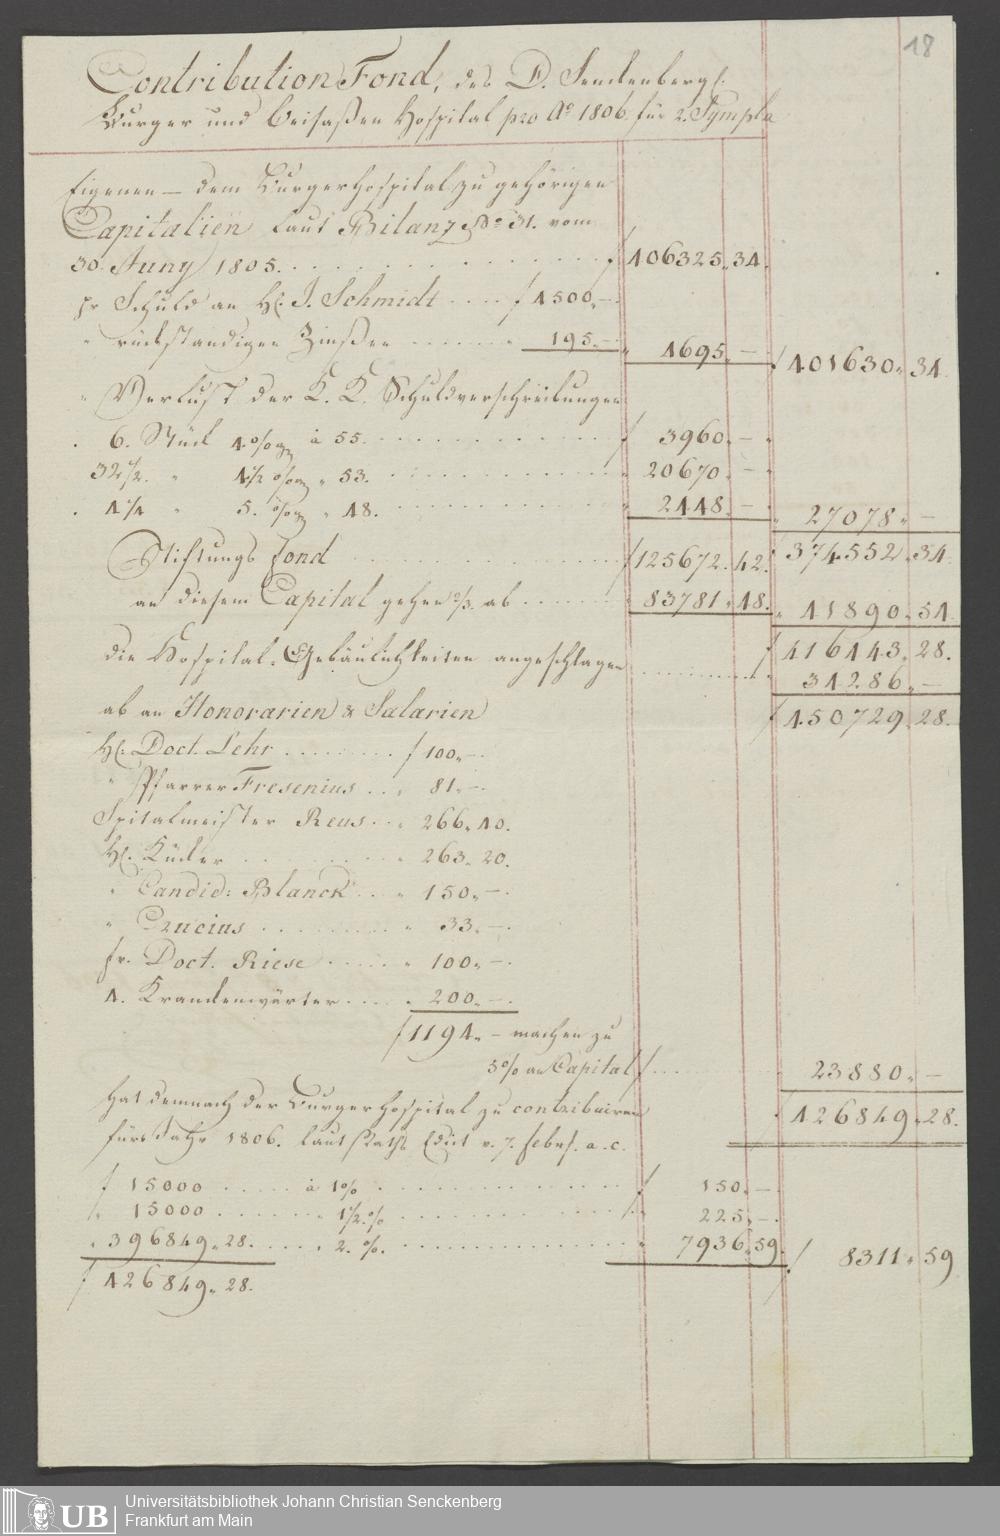 18
Contribution Fond, des D. Senckenbergs.
Burger und Beisaßen Hospital pro Ao 1806. für 2. Sympla
Eigenen – dem Burgerhospital zu gehörigen
Capitalien laut Bilanz No 31. vom
30. Juny 1805. f 406325. 34.
pr Schuld an H. J. Schmidt f 4500. –
" rückständigen Zinßen " 195. – " 4695. – f 401630. 34.
" Verlust der K. K. Schuldverschreibungen
. 6. Stück 4. % à 55. f 3960. –
32 1/2. " 4 1/2 % " 53. " 20670. –
. 4 1/4 " 5. % " 48. " 2448. – " 27078. –
Stiftungs Fond f 125672. 42. 374552. 34.
an diesem Capital gehen 2/3. ab " 83781. 48. " 41890. 54.
f 416443. 28.
die Hospital-Gebäulichkeiten angeschlagen 34286. –
f 450729. 28.
ab an Honorarien & Salarien
H. Doct. Lehr f 100. –
" Pfarrer Fresenius " 81. –
Spitalmeister Reus " 266. 40.
H. Küchler " 263. 20.
" Candid: Blanck " 150. –
" Crucius " 33. –
Fr. Doct. Riese " 100. –
4. Krankenwärter " 200. –
f 1194. – machen zu
5 % an Capital f 23880. –
hat demnach der Burgerhospital zu contribuiren f 426849. 28.
fürs Jahr 1806. laut Raths Edict v. 7. Febr. a. c.
f 15000 à 1 % f 150. –
" 15000 " 1 1/2. % " 225. –
" 396849. 28. " 2. %. " 7936. 59. f 8311. 59
f 426849. 28.
UB
Universitätsbibliothek Johann Christian Senckenberg
Frankfurt am Main